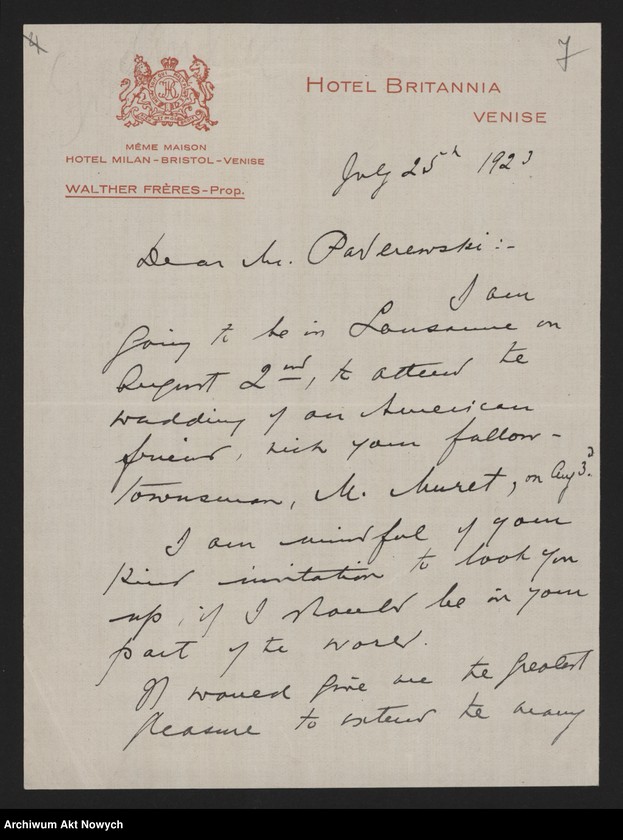 4
7
HOTEL BRITANNIA
VENISE
MÊME MAISON
HOTEL MILAN-BRISTOL-VENISE
WALTHER FRÈRES-Prop.
July 25th 1923
Dear Mr. Paderewski:-
I am
going to be in Lausanne on
August 2nd, to attend the
wedding of an American
friend, with your fellow-
townsman, M. Muret, on Aug 3d.
I am mindful of your
kind invitation to look you
up, if I should be in your
part of the world.
It would give me the greatest
pleasure to extend the many
Archiwum Akt Nowych